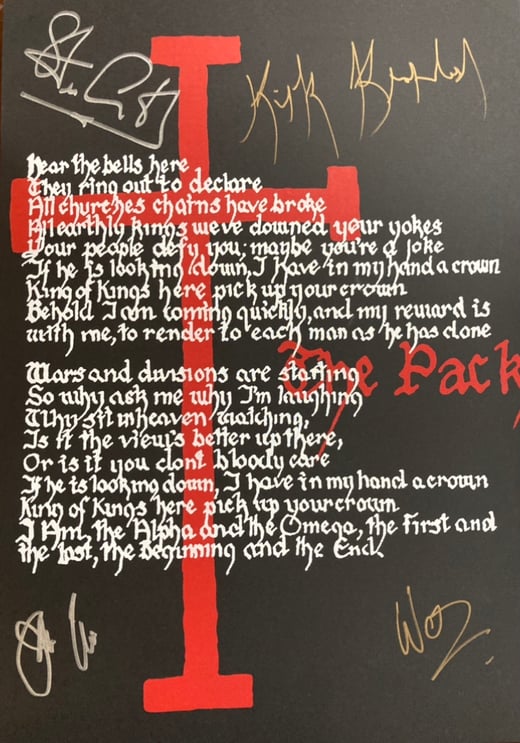 Kirk Brandon
Hear the bells here
They ring out to declare
All churches chains have broke
All earthly kings we've downed your yokes
Your people defy you; maybe you're a joke
If he is looking down, I have in my hand a crown
King of Kings here pick up your crown
Behold I am coming quickly, and my reward is
with me, to render to each man as he has done
The Pack
Wars and divisions are starting
So why ask me why I'm laughing
Why sit in heaven watching,
Is it the view's better up there,
Or is it you dont bloody care
If he is looking down, I have in my hand a crown
King of Kings here pick up your crown
I Am, the Alpha and the Omega, the first and
the last, the Beginning and the End.